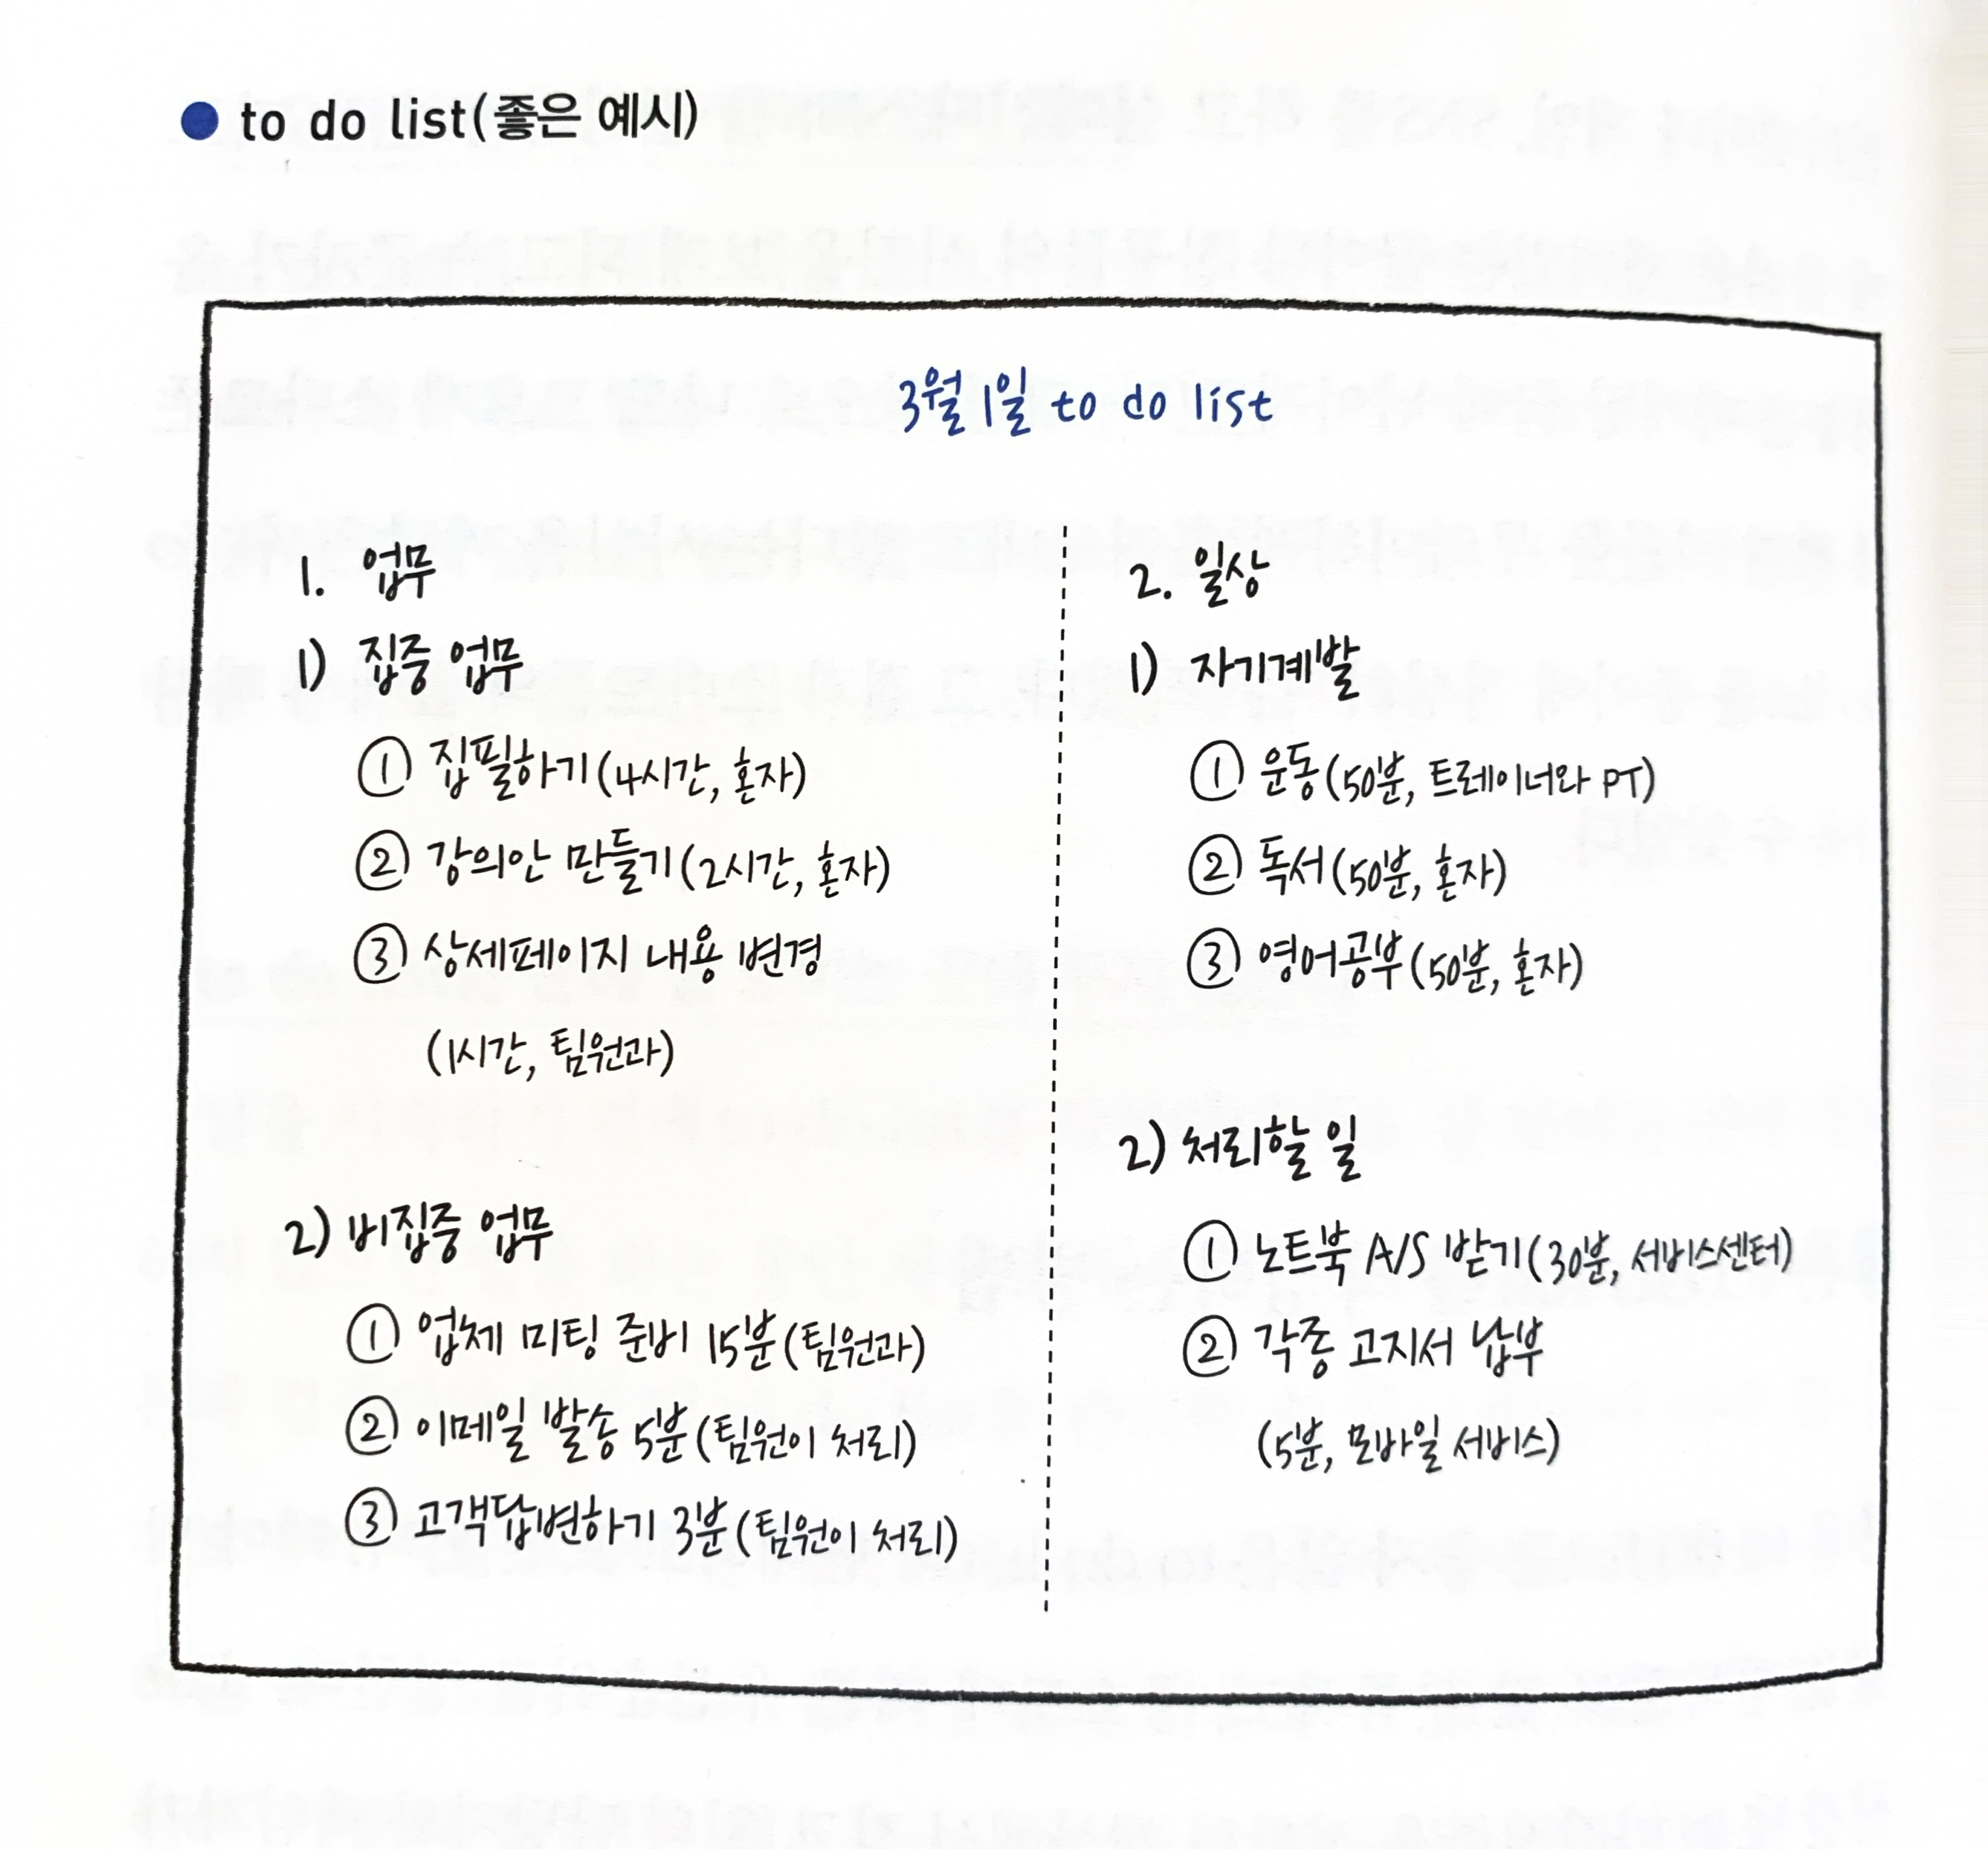 to do list(좋은 예시)
3월 1일 to do list
1. 업무
1) 집중 업무
① 집필하기(4시간, 혼자)
② 강의안 만들기(2시간, 혼자)
③ 상세페이지 내용 변경
(1시간, 팀원과)
2) 비집중 업무
① 업체 미팅 준비 15분(팀원과)
② 이메일 발송 5분(팀원이 처리)
③ 고객답변하기 3분(팀원이 처리)
2. 일상
1) 자기계발
① 운동(50분, 트레이너와 PT)
② 독서(50분, 혼자)
③ 영어공부(50분, 혼자)
2) 처리할 일
① 노트북 A/S 받기(30분, 서비스센터)
② 각종 고지서 납부
(5분, 모바일 서비스)